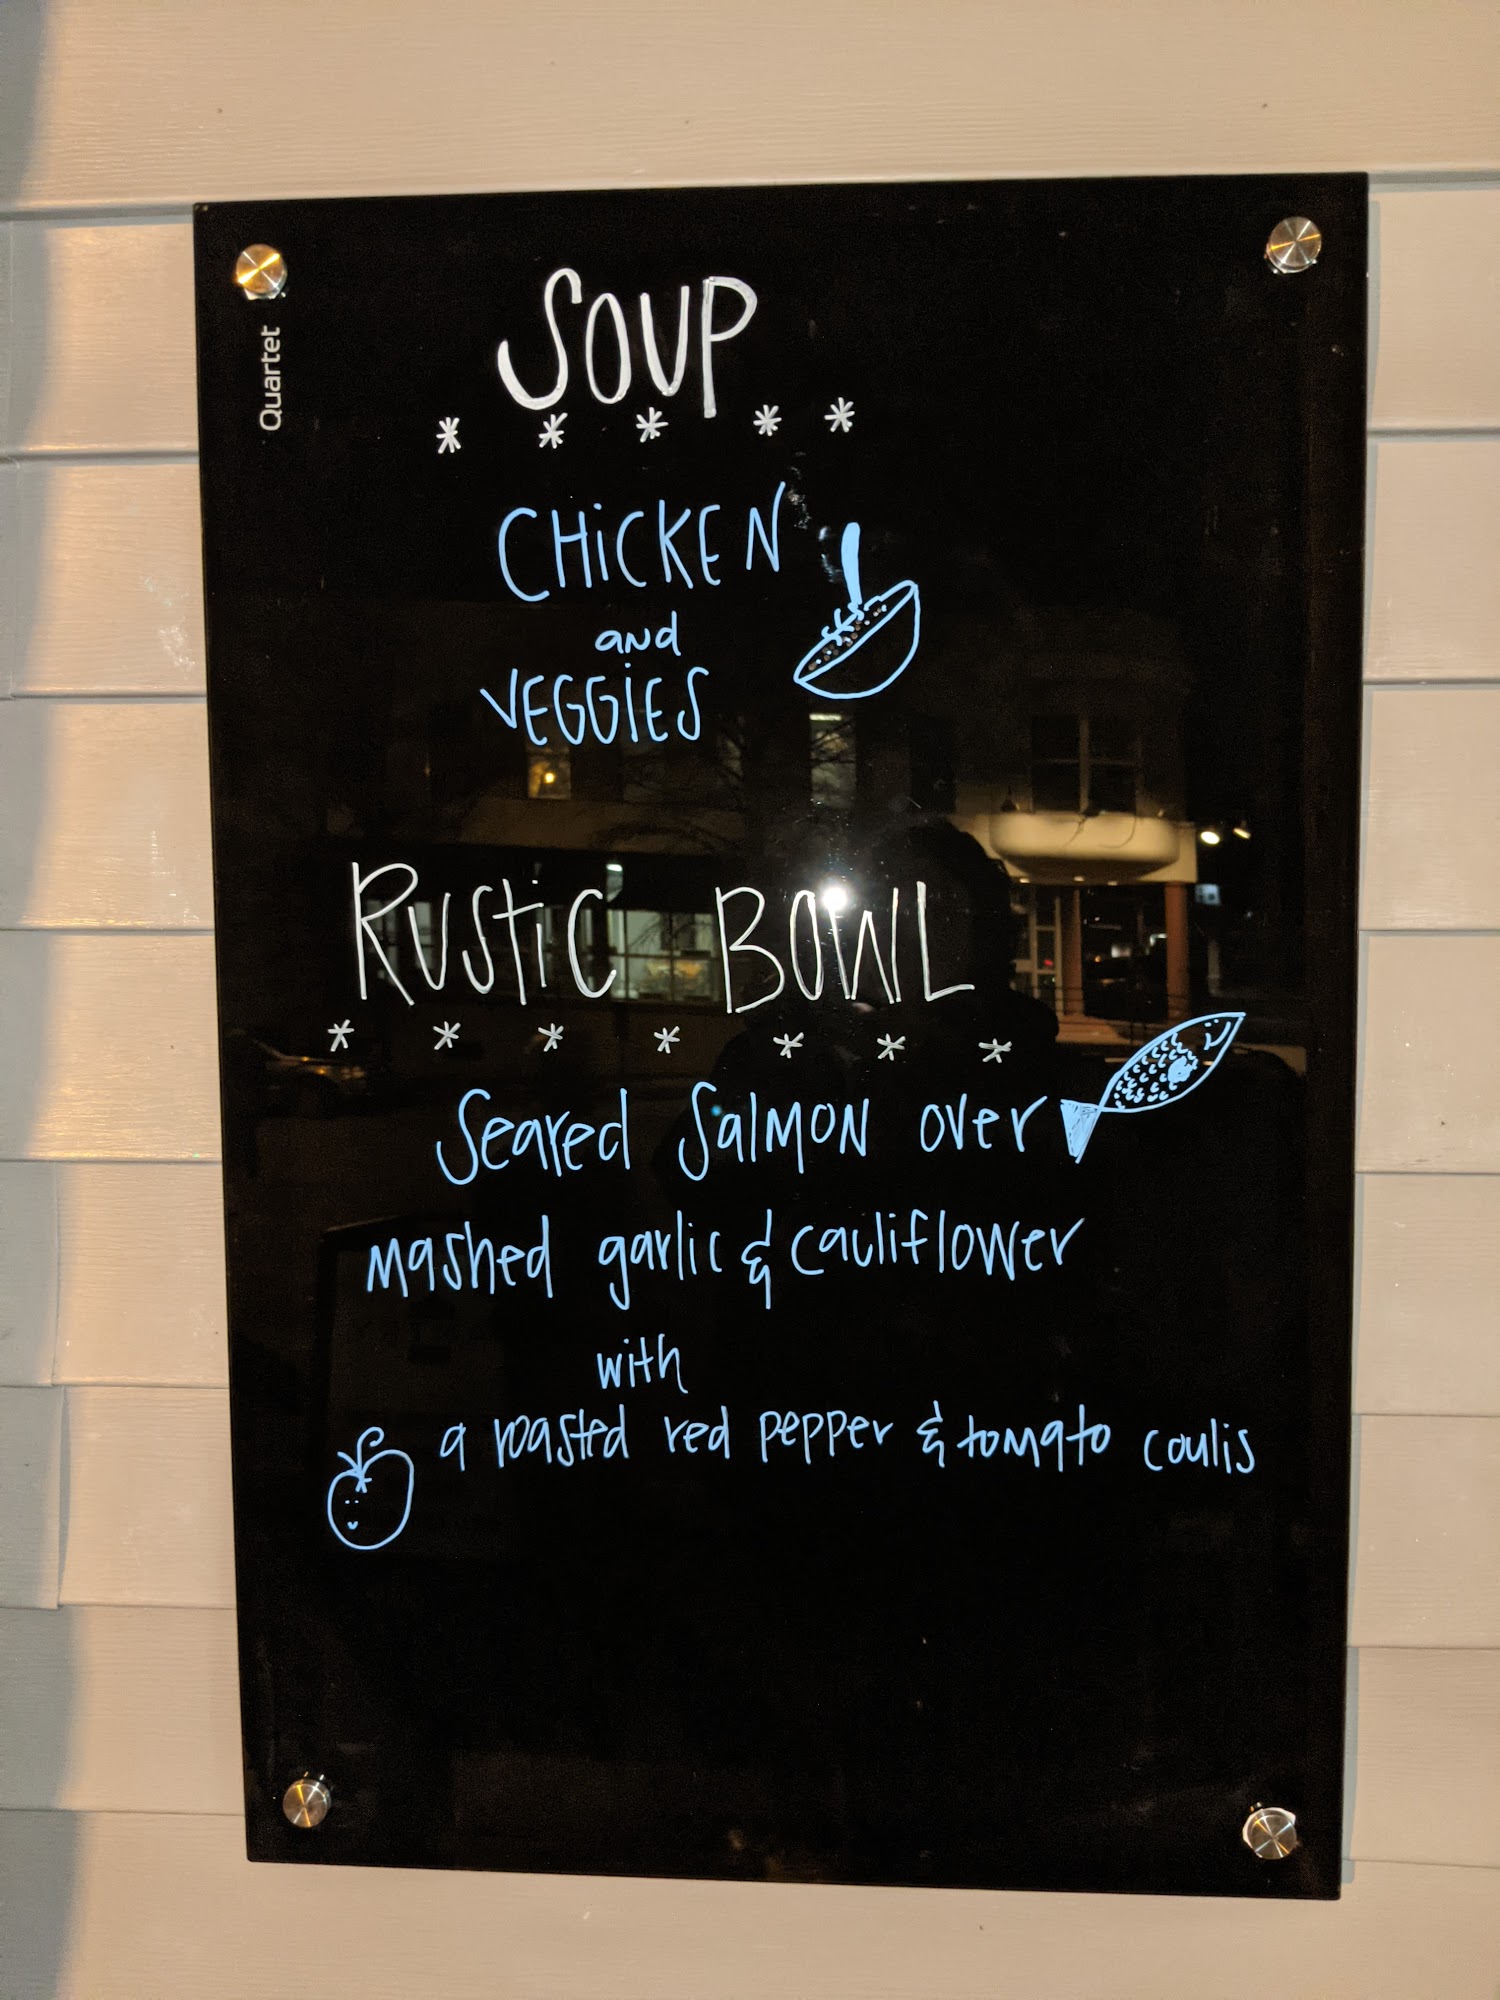 Quartet
SOUP
* * * * *
CHiCKEN
and
VEGGiES
RUStiC BOWL
* * * * * * *
Seared Salmon over
mashed garlic & cauliflower
with
a roasted red pepper & tomato coulis